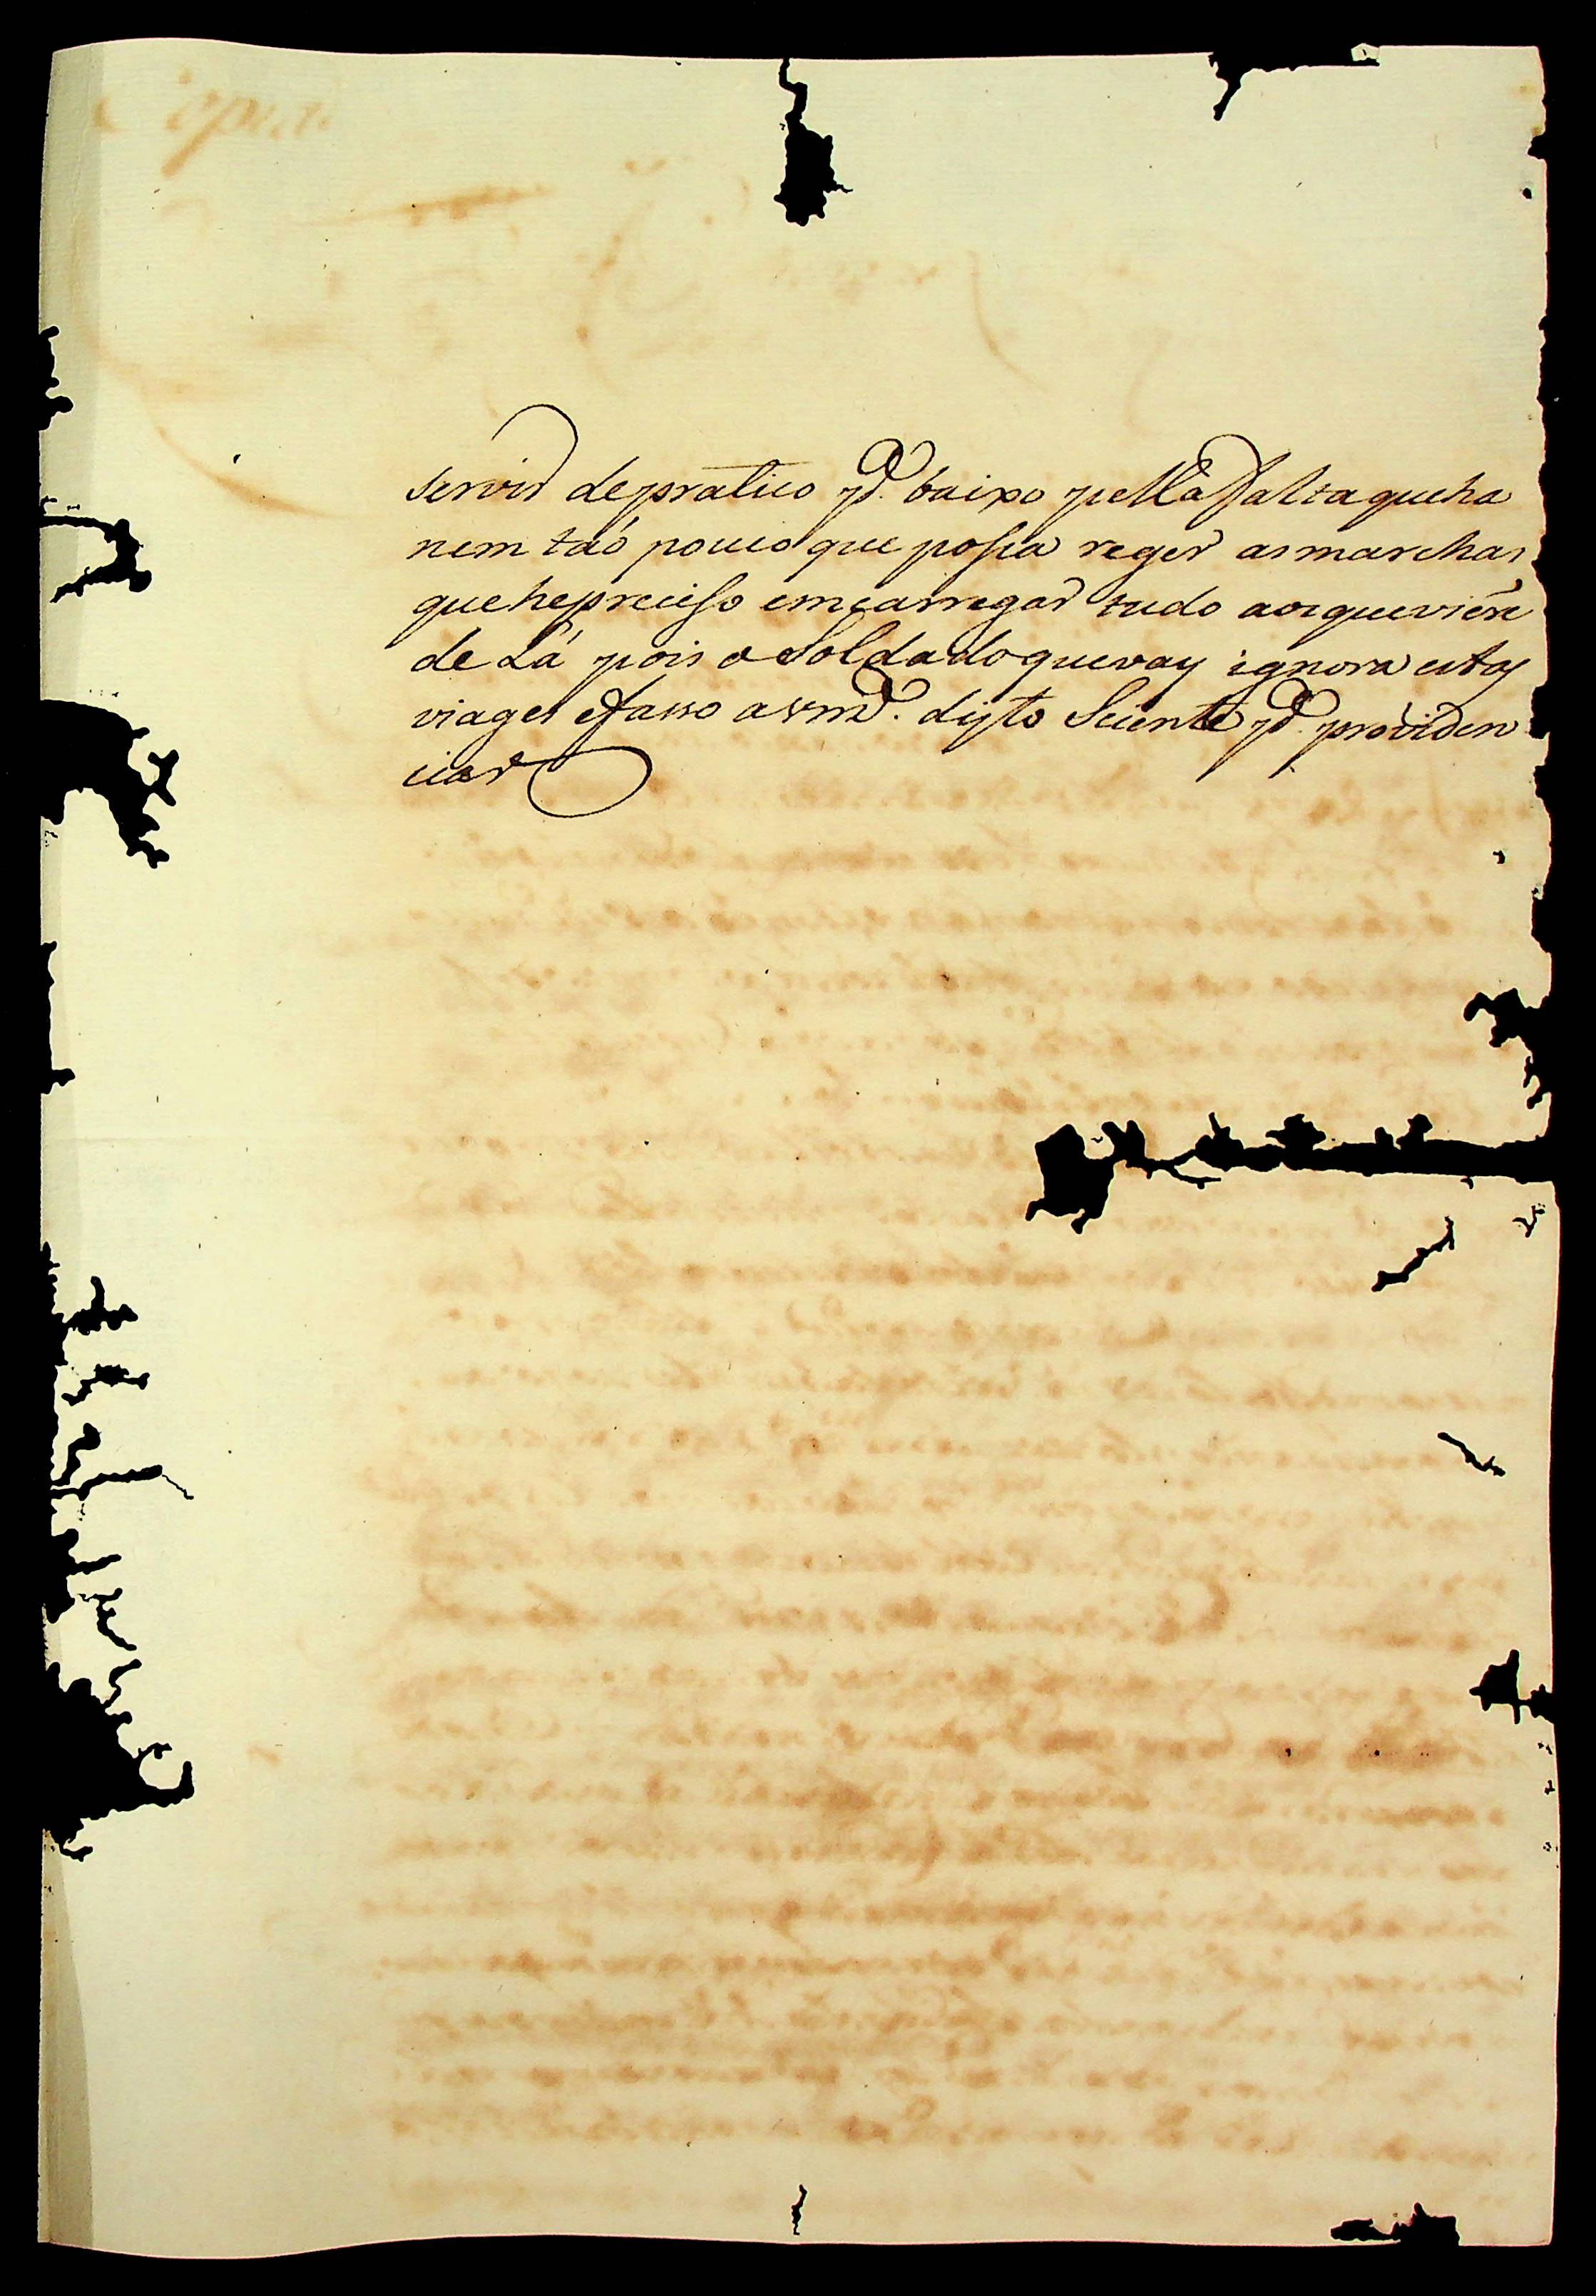 servir de pratico pª. baixo pella falta que ha
nem taó pouco que possa reger as marchas
que he preciso emcarregar tudo aos que viere
de Lá pois o Soldado que vay ignora estas
viages e faço a vmᵉ. disto Sciente pª. providen
ciar